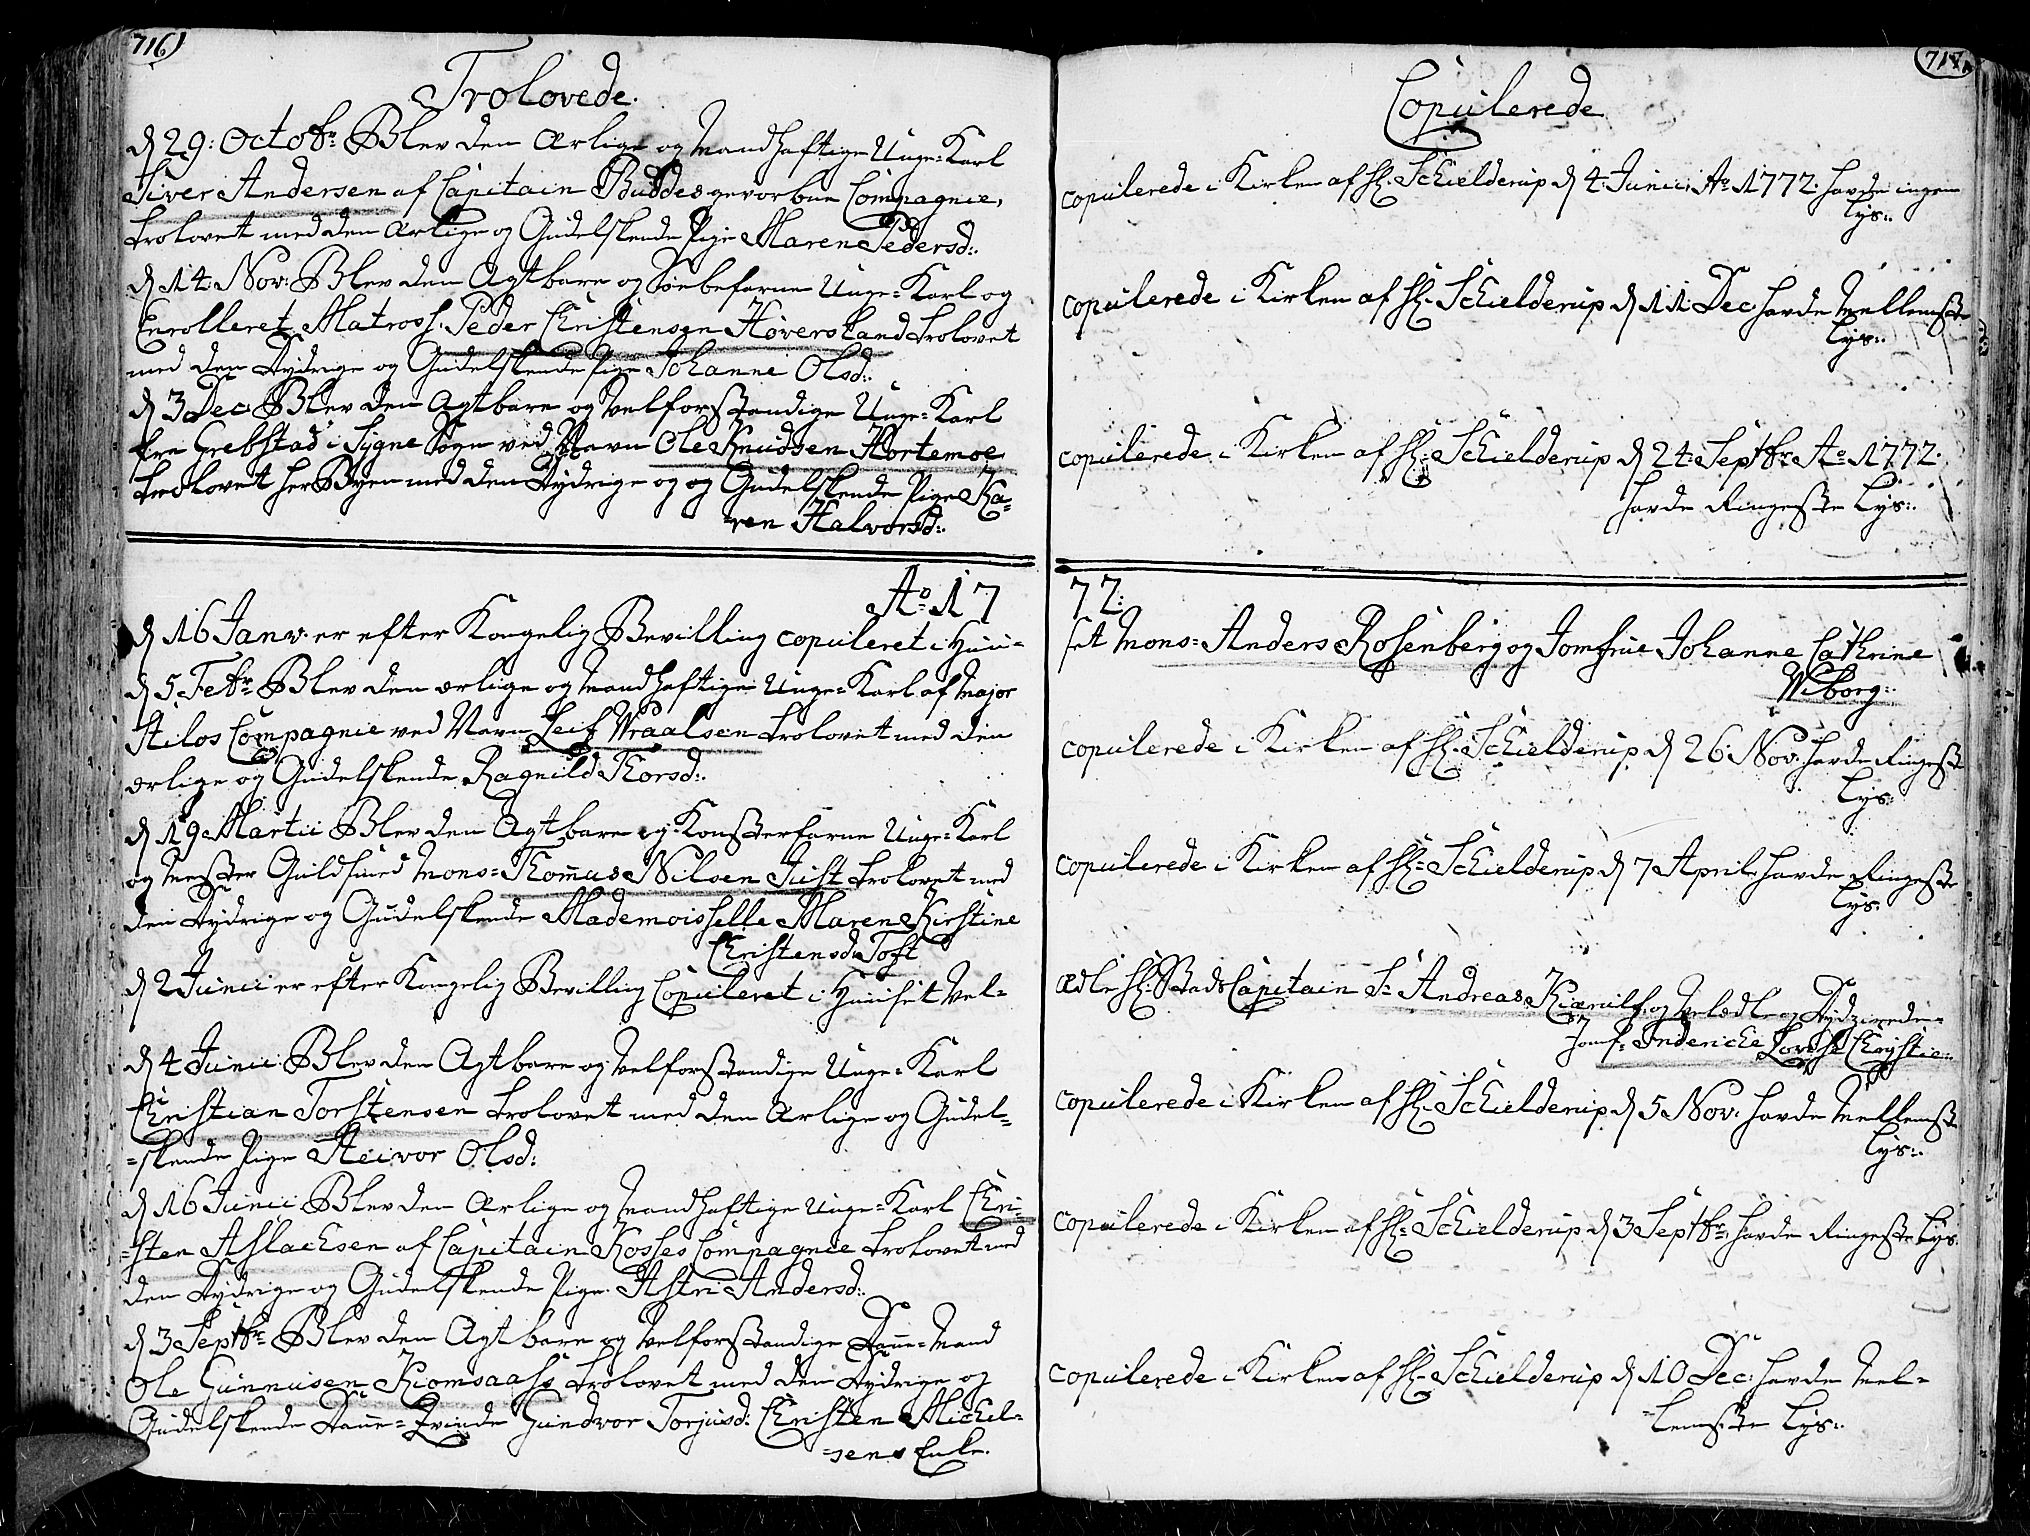 716)
Trolovede.
d 29: Octobr: Blev den Ærlige og Mandhaftige Unge=Karl
Siver Andersen af Capitain Buddes gevorbne Compagnie,
trolovet med den Ærlige og Gudelskende Pige Maren Pedersd:.
d 14 Nov: Blev den Agtbare og Søebefarne Unge=Karl og
Enrolleret Matros h. Peder Christensen Høversland trolovet
med den Dydrige og Gudelskende Pige Johanne Olsd:.
d 3 Dec: Blev den Agtbare og Velforstandige Unge=Karl
fra Grebstad i Sygne Sogn ved Navn Ole Knudsen Hortemoe
trolovet her Byen med den Dydrige og og Gudelskende Pige Ka=
=ren Halvorsd:.
Ao 17
d 16 Janv: er efter Kongelig Bevilling copuleret i Huu=
d 5 Febr: Blev den ærlige og Mandhaftige Unge=Karl af Major
Stilos Compagnie ved Navn Leif Wraalsen trolovet med den
ærlige og Gudelskende Ragnild Torsd:.
d 19 Martii Blev den Agtbare og Konsterfarne Unge=Karl
og Mester Guldsmed Mons= Thomas Nilsen Just trolovet med
den Dydrige og Gudelskende Mademoiselle Maren Kirstine
Christensd: Toft
d 2 Junii er efter Kongelig Bevilling Copuleret i Huuset Vel=
d 4 Junii: Blev den Agtbare og Velforstandige Unge=Karl
Christian Torstensen trolovet med den Ærlige og Gudel=
=skende Pige Steivor Olsd:
d 16 Junii Blev den Ærlige og Mandhaftige Unge=Karl Chri=
=sten Aslachsen af Capitain Kosses Compagnie trolovet med
den Dydrige og Gudelskende Pige Astri Andersd:.
d 3 Septbr: Blev den Agtbare og Velforstandige Danne=Mand
Ole Gunnusen Kiomsaass trolovet med den Dydrige og
Gudelskende Danne=Qvinde Gundvor Torjusd: Christen Michel=
=sens Enke.
717.
Copulerede
copulerede i Kirken af H: Schielderup d 4 Junii Ao 1772: havde ingen
Lys:.
copulerede i Kirken af H: Schielderup d 11 Dec: havde Mellemste
Lys:.
copulerede i Kirken af H: Schielderup d 24 Septbr: Ao 1772.
havde Ringeste Lys:.
72:
set Mons= Anders Rosenberg og Jomfrue Johanne Cathrine
Wiborg:.
copulerede i Kirken af H: Schielderup d 26 Nov: havde Ringeste
Lys:
copulerede i Kirken af H: Schielderup d 7 April: havde Ringeste
Lys:
ædle H: Stads Capitain Sr Andreas Kiærulf, og Velædle og Dydzirede=
Jomf: Inderiche Lovise Christie:.
copulerede i Kirken af H: Schielderup d 5 Nov: havde Mellemste
Lys:.
copulerede i Kirken af H: Schielderup d 3 Septbr: havde Ringeste Lys.
copulerede i Kirken af H: Schielderup d 10 Dec: havde Mel=
=lemste Lys:.